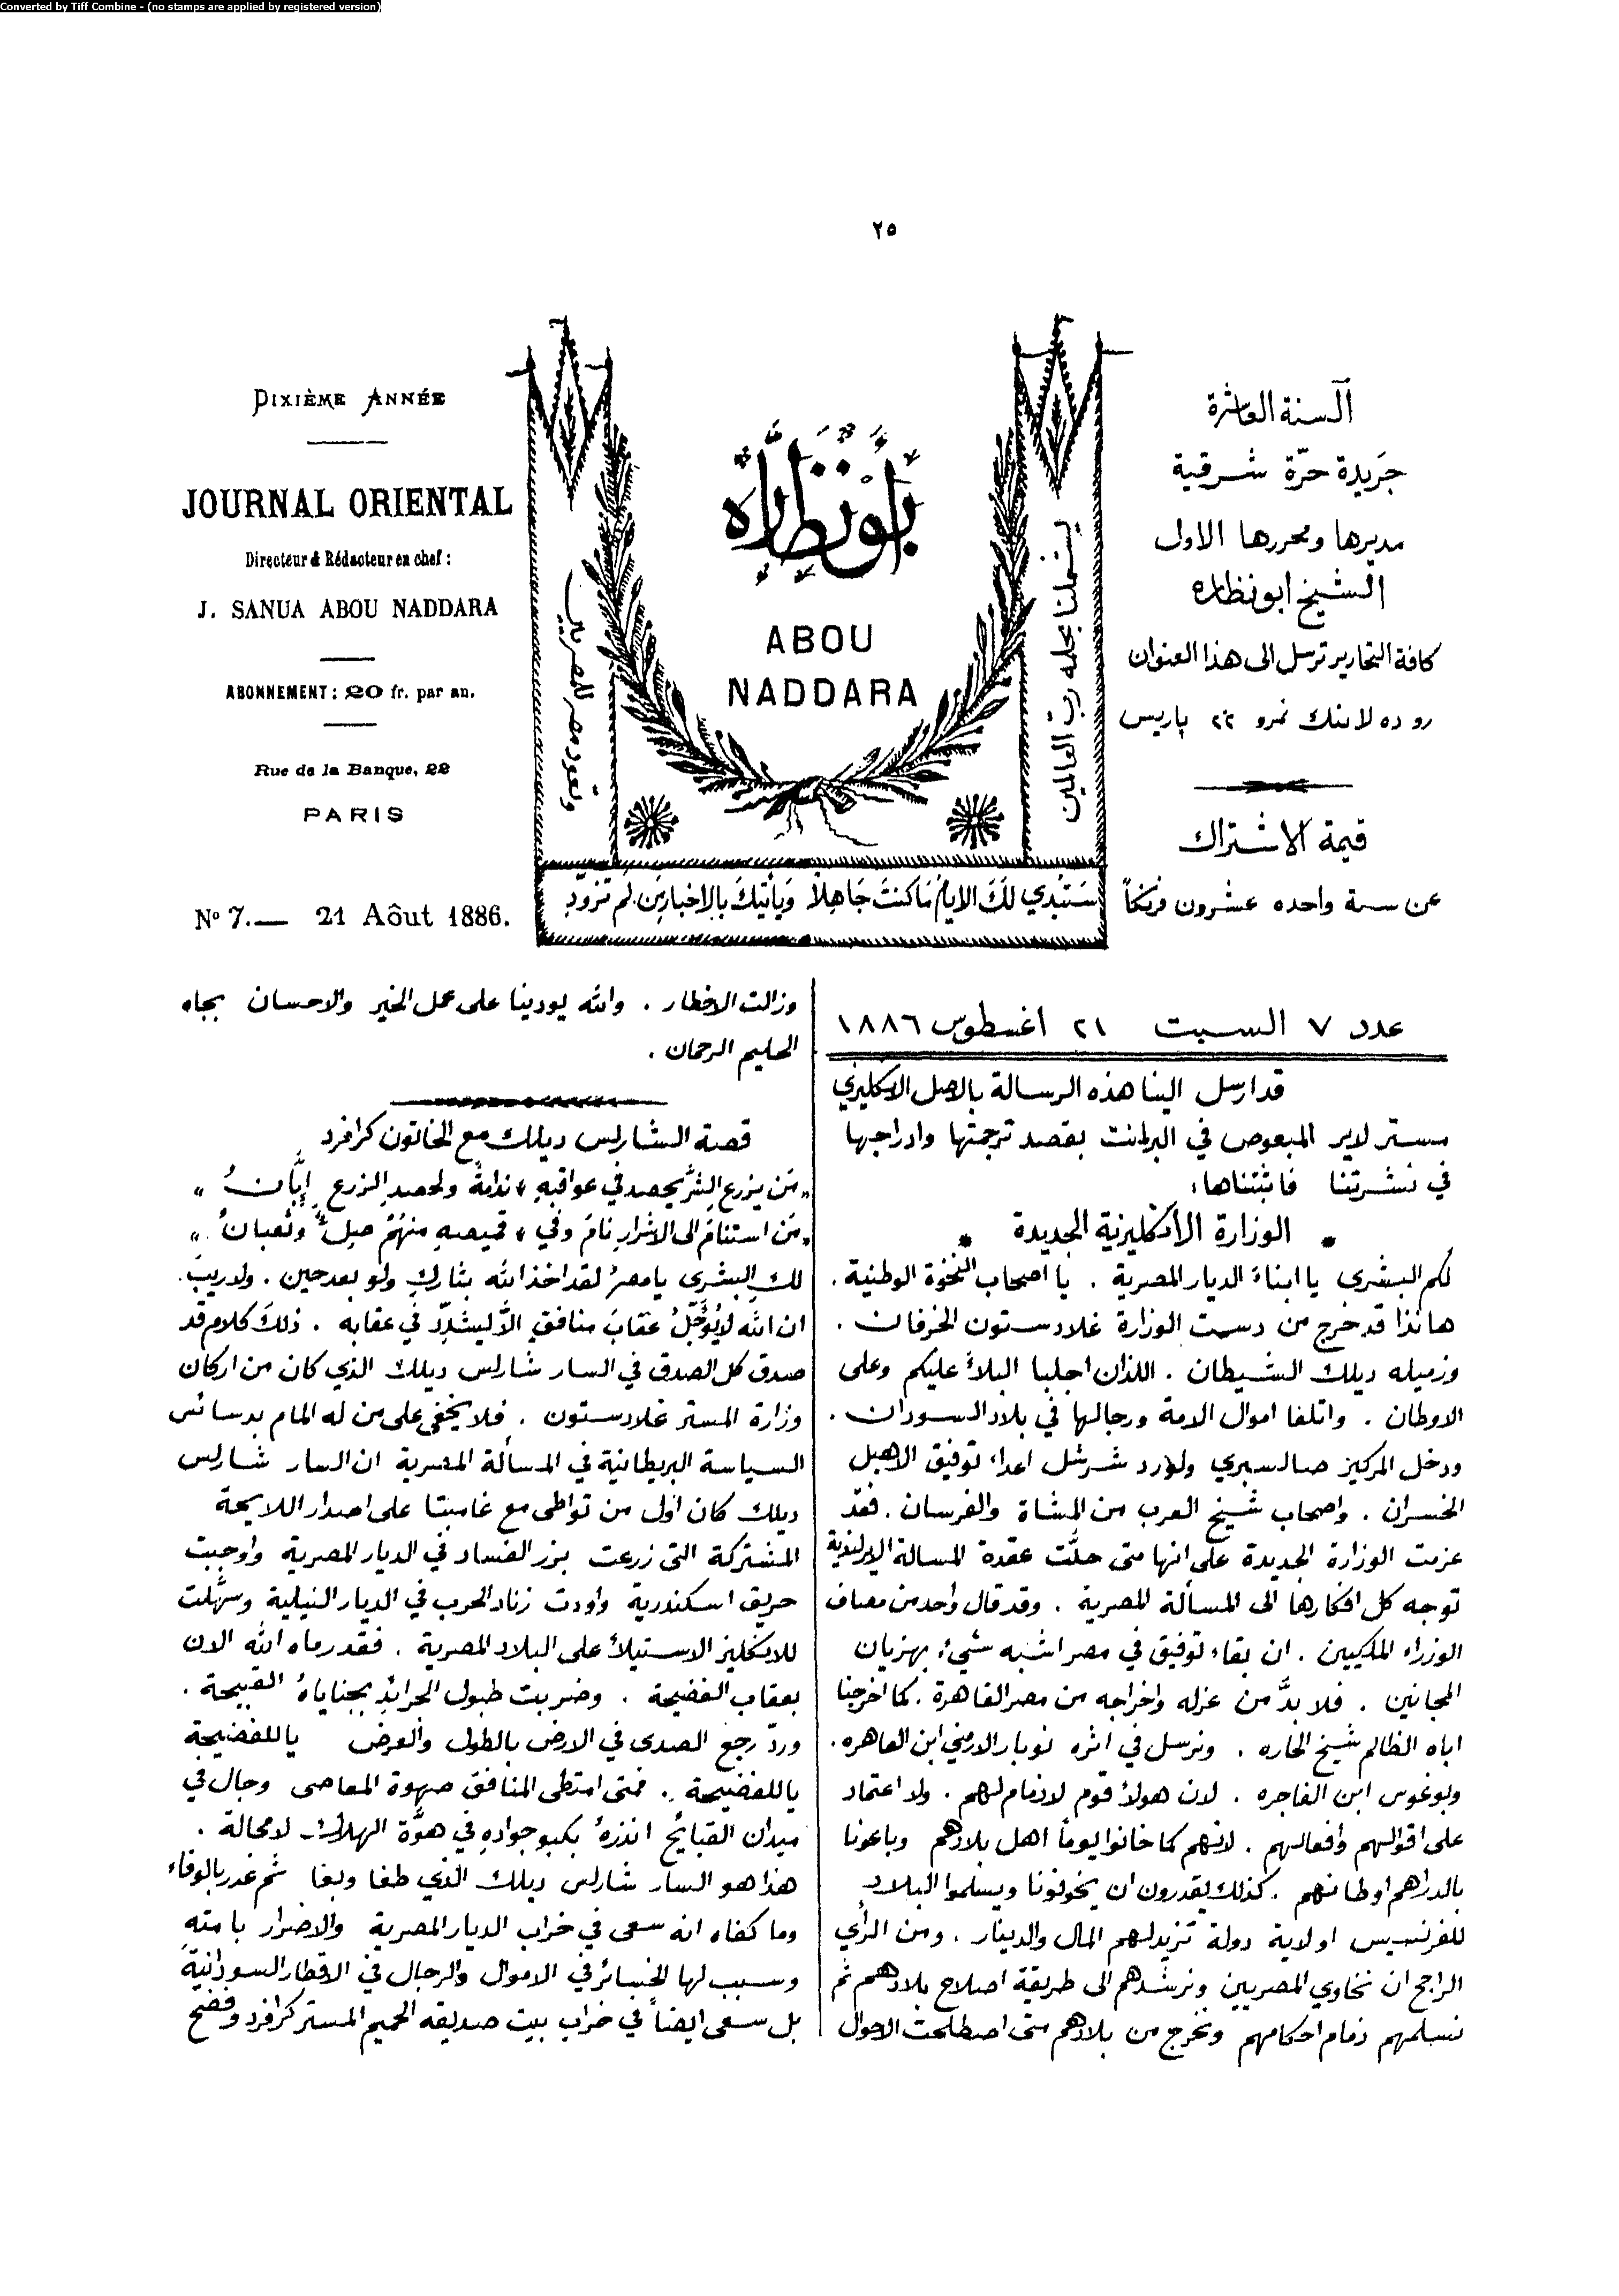 Converted by Tiff Combine - (no stamps are applied by registered version)
٢٥
DIXIÈME ANNÉE
JOURNAL ORIENTAL
Directeur & Rédacteur en chef :
J. SANUA ABOU NADDARA
ABONNEMENT : 20 fr. par an.
Rue de la Banque, 22
PARIS
Nº 7. — 21 Août 1886.
ابو نظاره
ABOU
NADDARA
يشملنا بحلمه رب العالمين
وتعود مصر للمصريين
سَتُبدِي لَكَ الايامُ مَا كنتَ جَاهِلاً وَيَأتيكَ بالاخبارِ مَن لم تزوّدِ
السنة العاشرة
جَريدة حرّة شرقية
مديرها ومحررها الاول
الشيخ ابو نظاره
كافة التحارير ترسل الى هذا العنوان
رو ده لا بنك نمرو ٢٢ پاريس
قيمة الاشتراك
عن سنة واحده عشرون فرنكاً
عدد ٧ السبت ٢١ اغسطوس ١٨٨٦
قد ارسل الينا هذه الرسالة بالاصل الانكليزي
مستر لاير المبعوص في البرلمانت بقصد ترجمتها وادراجها
في نشرتنا فاثبتناها:
* الوزارة الأنكليزية الجديدة *
لكم البشرى يا ابناءَ الديار المصرية . يا اصحاب النخوة الوطنية .
هانذا قد خرج من دست الوزارة غلادستون الخرفان .
وزميله ديلك الشيطان . اللذان اجلبا البلاءَ عليكم وعلى
الاوطان . واتلفا اموال الامة ورجالها في بلاد السودان .
ودخل المركيز صالسبري ولورد شرشل اعداء توفيق الاهبل
الخسران . واصحاب شيخ العرب من المشاة والفرسان . فقد
عزمت الوزارة الجديدة على انها متى حلَّت عقدة المسالة الايرلندية
توجه كل افكارها الى المسألة المصرية . وقد قال واحد من مصاف
الوزراء الملكيين . ان بقاء توفيق في مصر اشبه شيء بهزيان
المجانين . فلا بدَّ من عزله واخراجه من مصر القاهرة . كما اخرجنا
اباه الظالم شيخ الحاره . ونرسل في اثره نوبار الارمني ابن العاهره .
وبوغوس ابن الفاجره . لان هولاءَ قوم لا ذمام لهم . ولا اعتماد
على اقوالهم وافعالهم . لانهم كما خانوا يوماً اهل بلادهم وباعونا
بالدراهم اوطانهم . كذلك يقدرون ان يخونونا ويسلموا البلاد
للفرنسيس او لاية دولة تزيد لهم المال والدينار . ومن الرأي
الراجح ان نخاوي المصريين ونرشدهم الى طريقة اصلاح بلادهم ثم
نسلمهم زمام احكامهم ونخرج من بلادهم متى اصطلحت الاحوال
وزالت الاخطار . والله يودينا على عمل الخير والاحسان بجاه
الحليم الرحمان .
قصة الشارلس ديلك مع الخاتون كرافرد
"مَن يزرع الشرَّ يحصد في عواقبهِ ، ندامةً ولحصد الزرع إبَّانُ"
"مَن استنامَ الى الاشرارِ نامَ وفي ، قميصهِ منهُمُ صِلٌّ وثعبانُ"
لكِ البشرى يا مصرُ لقد اخذ الله بثاركِ ولو بعد حين . ولا ريبَ
ان الله لا يُؤَجِّلُ عقابَ منافقٍ الاّ ليشدِّد في عقابه . ذلكَ كلام قد
صدق كل الصدق في السار شارلس ديلك الذي كان من اركان
وزارة المستر غلادستون . فلا يخفى على من له المام بدسائس
السياسة البريطانية في المسألة المصرية ان السار شارلس
ديلك كان اوّل من تواطى مع غامبتا على اصدار اللايحة
المشتركة التي زرعت بزر الفساد في الديار المصرية واوجبت
حريق اسكندرية واورت زناد الحرب في الديار النيلية وسهَّلت
للانكليز الاستيلاءَ على البلاد المصرية . فقد رماه الله الان
بعقاب الفضيحة . وضربت طبول الجرائد بجناياهُ القبيحة .
وردّ رجع الصدى في الارض بالطول والعرض ياللفضيحة
ياللفضيحة .. فمتى امتطى المنافق صهوة المعاصى وجال في
ميدان القبائح انذرهُ بكبو جوادهِ في هوَّة الهلاك لا محالة .
هذا هو السار شارلس ديلك الذي طغا وبغا ثم غدر بالوفاء
وما كفاه انه سعى في خراب الديار المصرية والاضرار بامتهِ
وسبب لها الخسائر في الاموال والرجال في الاقطار السودانيَّةَ
بل سعى ايضاً في خراب بيت صديقه الحميم المستر كرافرد وفضح